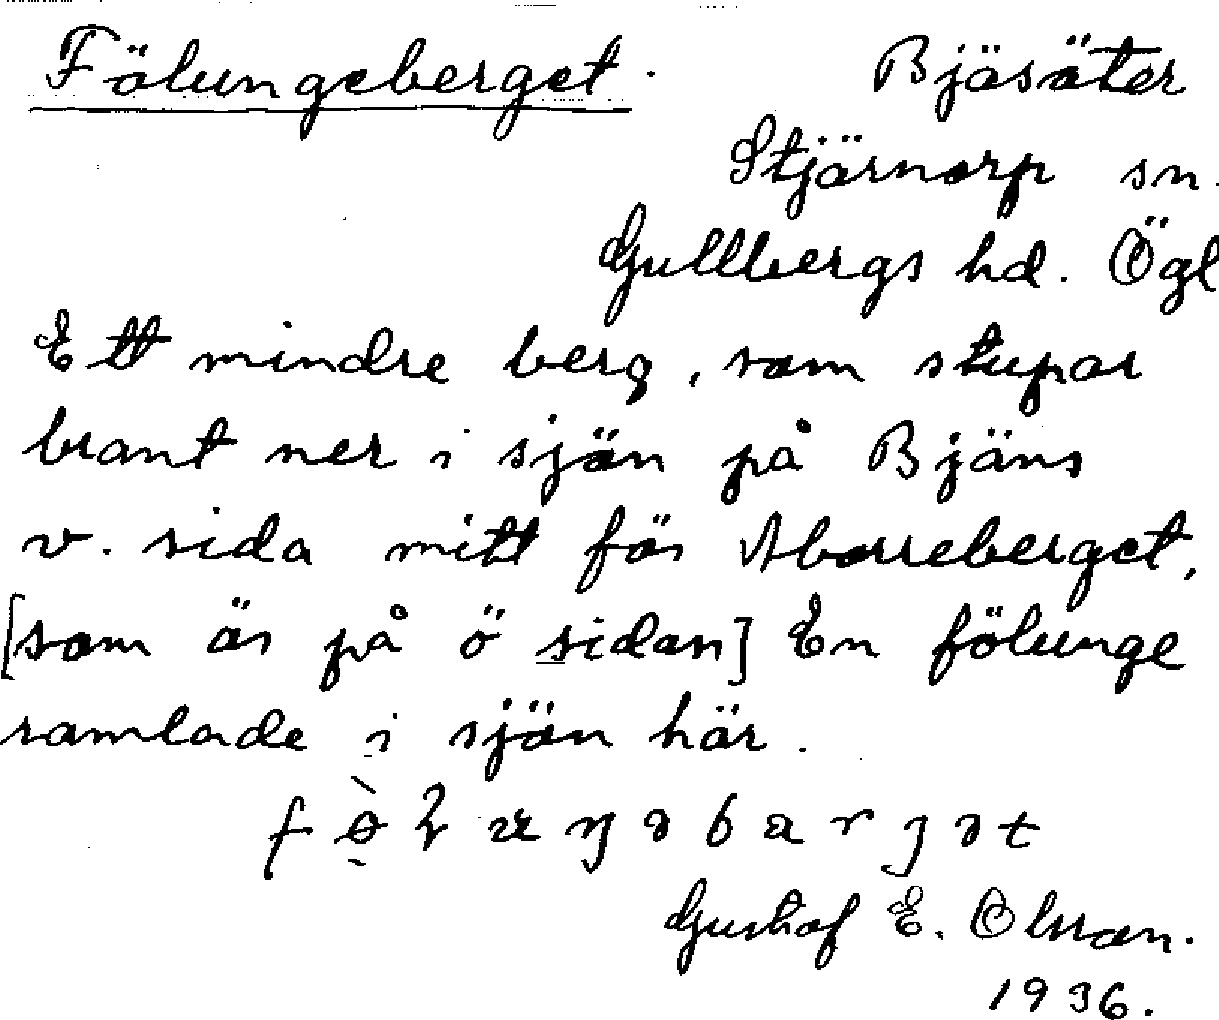 Fölungeberget. Bjäsäter
Stjärnorp sn.
Gullbergs hd. Ögl
Ett mindre berg, som stupar
brant ner i sjön på Bjäns
v. sida mitt för Aborreberget,
[som är på ö sidan] En fölunge
ramlade i sjön här.
Gustaf E. Olsson.
1936.